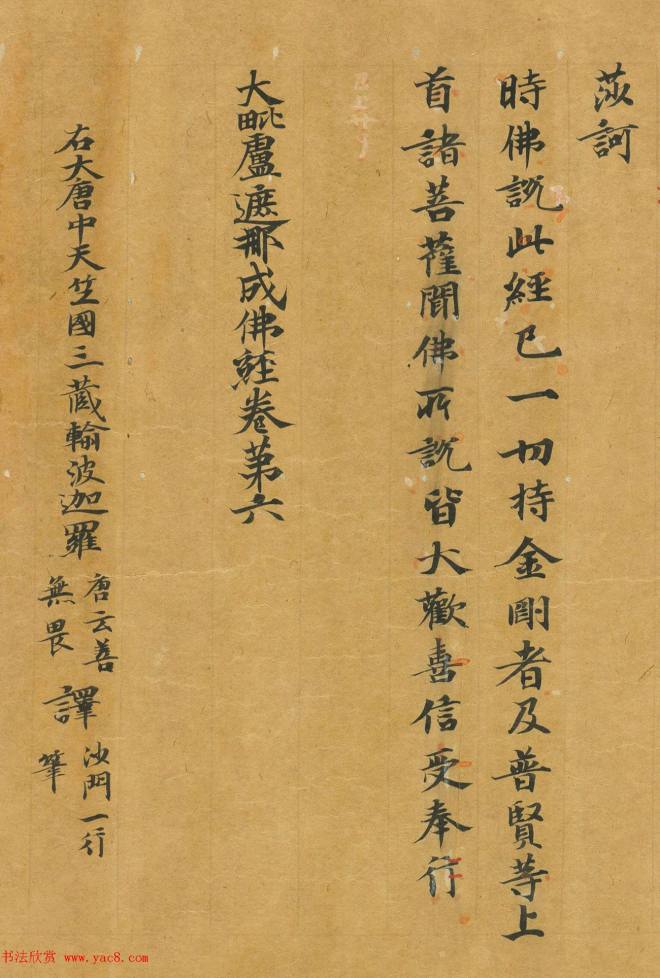 莎訶
時佛說此經已一切持金剛者及普賢等上
首諸菩薩聞佛所說皆大歡喜信受奉行
大毗盧遮那成佛經卷第六
右大唐中天竺國三藏輸波迦羅唐云善無畏譯沙門一行筆
书法欣赏 www.yac8.com